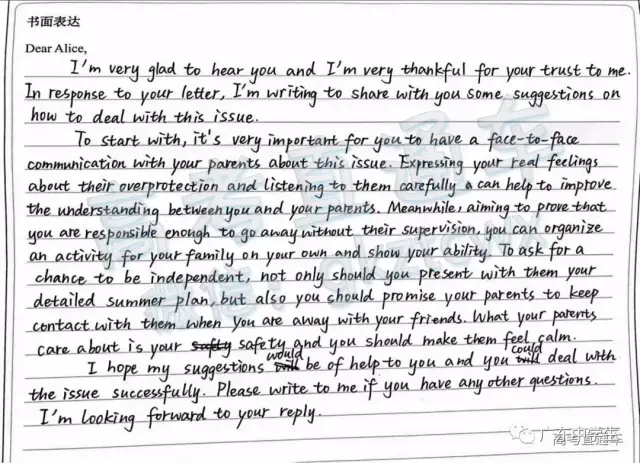 书面表达
Dear Alice,
I'm very glad to hear you and I'm very thankful for your trust to me.
In response to your letter, I'm writing to share with you some suggestions on
how to deal with this issue.
To start with, it's very important for you to have a face-to-face
communication with your parents about this issue. Expressing your real feelings
about their overprotection and listening to them carefully can help to improve
the understanding between you and your parents. Meanwhile, aiming to prove that
you are responsible enough to go away without their supervision, you can organize
an activity for your family on your own and show your ability. To ask for a
chance to be independent, not only should you present with them your
detailed summer plan, but also you should promise your parents to keep
contact with them when you are away with your friends. What your parents
care about is your safety and you should make them feel calm.
I hope my suggestions would be of help to you and you could deal with
the issue successfully. Please write to me if you have any other questions.
I'm looking forward to your reply.
高考直通车